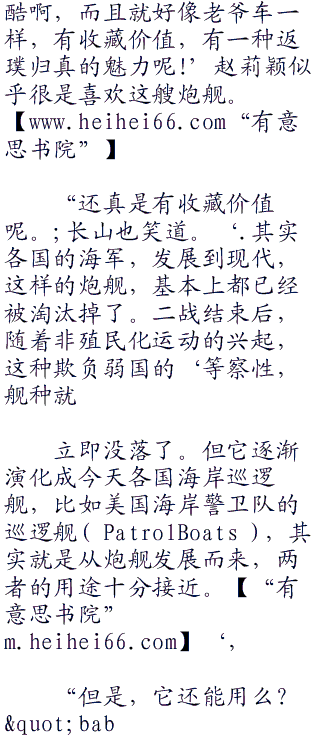 酷啊，而且就好像老爷车一
样，有收藏价值，有一种返
璞归真的魅力呢!’赵莉颖似
乎很是喜欢这艘炮舰。
【www.heihei66.com“有意
思书院”】
“还真是有收藏价值
呢。;长山也笑道。‘.其实
各国的海军，发展到现代，
这样的炮舰，基本上都已经
被淘汰掉了。二战结束后，
随着非殖民化运动的兴起，
这种欺负弱国的‘等察性，
舰种就
立即没落了。但它逐渐
演化成今天各国海岸巡逻
舰，比如美国海岸警卫队的
巡逻舰(PatrolBoats)，其
实就是从炮舰发展而来，两
者的用途十分接近。【“有
意思书院”
m.heihei66.com】‘，
“但是，它还能用么？
&quot;bab